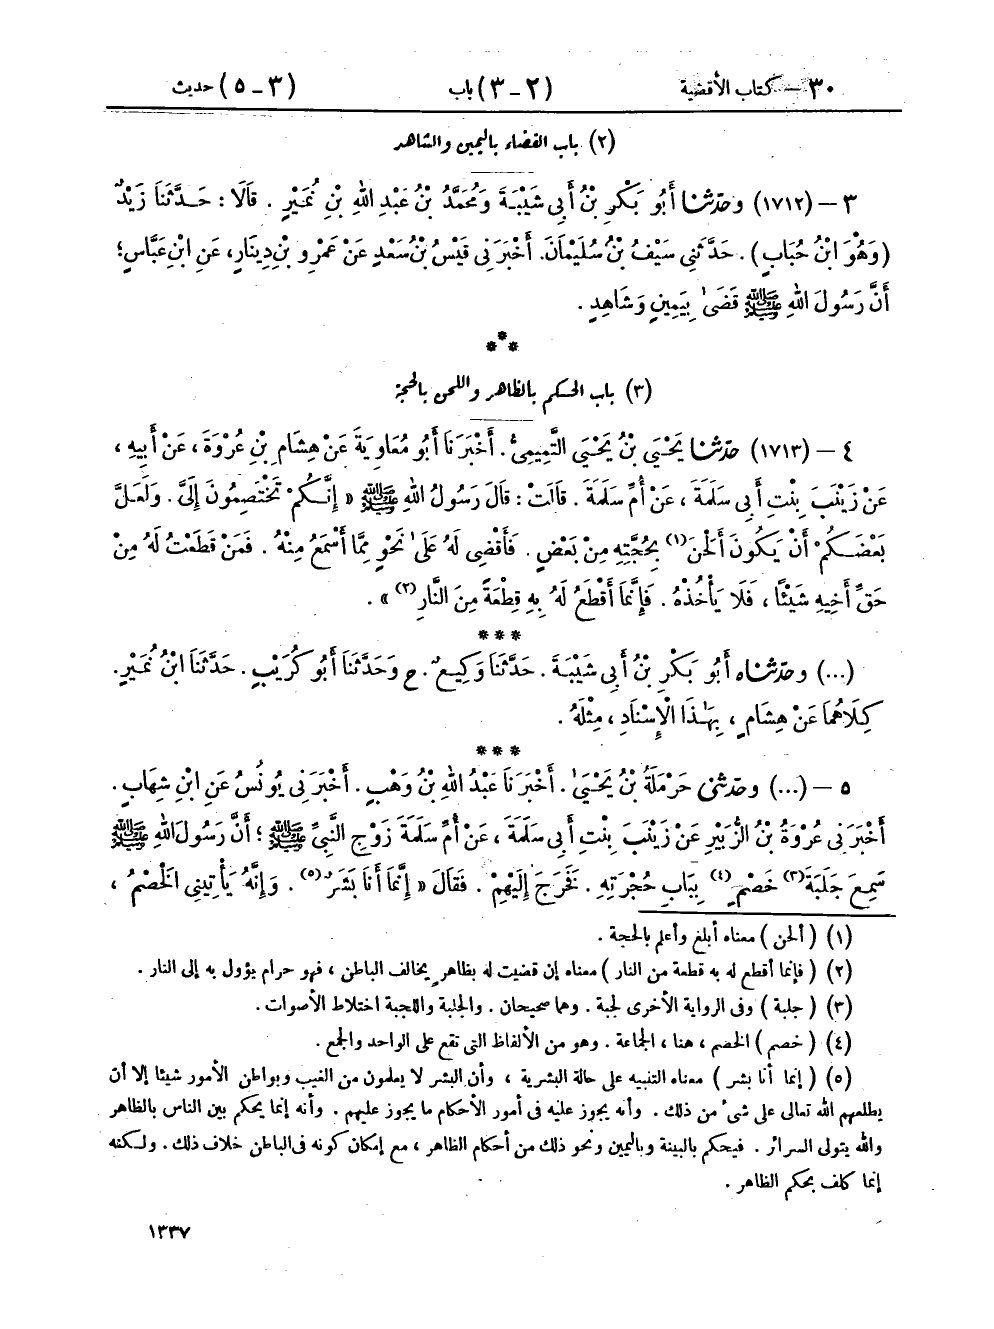 ٣٠ - كتاب الأقضية (٢ - ٣) باب (٣ - ٥) حديث
(٢) باب القضاء باليمين والشاهد
٣ - (١٧١٢) وحدّثنا أَبُو بَكْرِ بْنُ أَبِي شَيْبَةَ وَمُحَمَّدُ بْنُ عَبْدِ اللهِ بْنِ نُمَيْرٍ . قَالَا : حَدَّثَنَا زَيْدٌ
(وَهُوَ ابْنُ حُبَابٍ) . حَدَّثَنِي سَيْفُ بْنُ سُلَيْمَانَ. أَخْبَرَنِي قَيْسُ بْنُ سَعْدٍ عَنْ عَمْرِو بْنِ دِينَارٍ، عَنِ ابْنِ عَبَّاسٍ؛
أَنَّ رَسُولَ اللهِ ﷺ قَضَىٰ بِيَمِينٍ وَشَاهِدٍ .
***
(٣) باب الحكم بالظاهر واللحن بالحجة
٤ - (١٧١٣) حدّثنا يَحْيَىٰ بْنُ يَحْيَى التَّمِيمِيُّ . أَخْبَرَنَا أَبُو مُعَاوِيَةَ عَنْ هِشَامِ بْنِ عُرْوَةَ ، عَنْ أَبِيهِ ،
عَنْ زَيْنَبَ بِنْتِ أَبِي سَلَمَةَ ، عَنْ أُمِّ سَلَمَةَ . قَالَتْ : قَالَ رَسُولُ اللهِ ﷺ « إِنَّكُمْ تَخْتَصِمُونَ إِلَيَّ . وَلَعَلَّ
بَعْضَكُمْ أَنْ يَكُونَ أَلْحَنَ (١) بِحُجَّتِهِ مِنْ بَعْضٍ . فَأَقْضِي لَهُ عَلَىٰ نَحْوٍ مِمَّا أَسْمَعُ مِنْهُ . فَمَنْ قَطَعْتُ لَهُ مِنْ
حَقِّ أَخِيهِ شَيْئًا ، فَلَا يَأْخُذْهُ . فَإِنَّمَا أَقْطَعُ لَهُ بِهِ قِطْعَةً مِنَ النَّارِ (٢) » .
***
(...) وحدّثناه أَبُو بَكْرِ بْنُ أَبِي شَيْبَةَ . حَدَّثَنَا وَكِيعٌ . ح وَحَدَّثَنَا أَبُو كُرَيْبٍ . حَدَّثَنَا ابْنُ نُمَيْرٍ .
كِلَاهُمَا عَنْ هِشَامٍ ، بِهَٰذَا الْإِسْنَادِ ، مِثْلَهُ .
***
٥ - (...) وحدّثنى حَرْمَلَةُ بْنُ يَحْيَىٰ . أَخْبَرَنَا عَبْدُ اللهِ بْنُ وَهْبٍ . أَخْبَرَنِي يُونُسُ عَنِ ابْنِ شِهَابٍ .
أَخْبَرَنِي عُرْوَةُ بْنُ الزُّبَيْرِ عَنْ زَيْنَبَ بِنْتِ أَبِي سَلَمَةَ ، عَنْ أُمِّ سَلَمَةَ زَوْجِ النَّبِيِّ ﷺ ؛ أَنَّ رَسُولَ اللهِ ﷺ
سَمِعَ جَلَبَةَ (٣) خَصْمٍ (٤) بِبَابِ حُجْرَتِهِ . فَخَرَجَ إِلَيْهِمْ . فَقَالَ « إِنَّمَا أَنَا بَشَرٌ (٥) . وَإِنَّهُ يَأْتِينِي الْخَصْمُ ،
(١) ( ألحن ) معناه أبلغ وأعلم بالحجة .
(٢) ( فإنما أقطع له به قطعة من النار ) معناه إن قضيت له بظاهر يخالف الباطن ، فهو حرام يؤول به إلى النار .
(٣) ( جلبة ) وفى الرواية الأخرى لجبة . وهما صحيحان . والجلبة واللجبة اختلاط الأصوات .
(٤) ( خصم ) الخصم ، هنا ، الجماعة . وهو من الألفاظ التى تقع على الواحد والجمع .
(٥) ( إنما أنا بشر ) معناه التنبيه على حالة البشرية ، وأن البشر لا يعلمون من الغيب وبواطن الأمور شيئا إلا أن
يطلعهم الله تعالى على شىء من ذلك . وأنه يجوز عليه فى أمور الأحكام ما يجوز عليهم . وأنه إنما يحكم بين الناس بالظاهر
والله يتولى السرائر . فيحكم بالبينة وباليمين ونحو ذلك من أحكام الظاهر ، مع إمكان كونه فى الباطن خلاف ذلك . ولكنه
إنما كلف بحكم الظاهر .
١٣٣٧